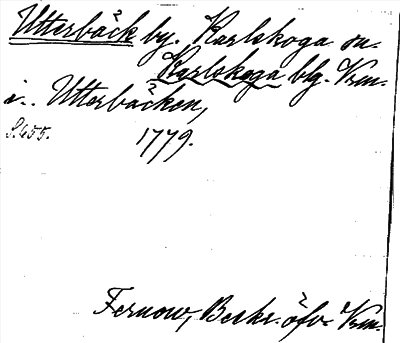 Utterbäck by. Karlskoga sn.
Karlskoga blg. Vrm.
i.. Utterbäcken,
S. 455. 1779.
Fernow, Beskr. öfv. Vrm.